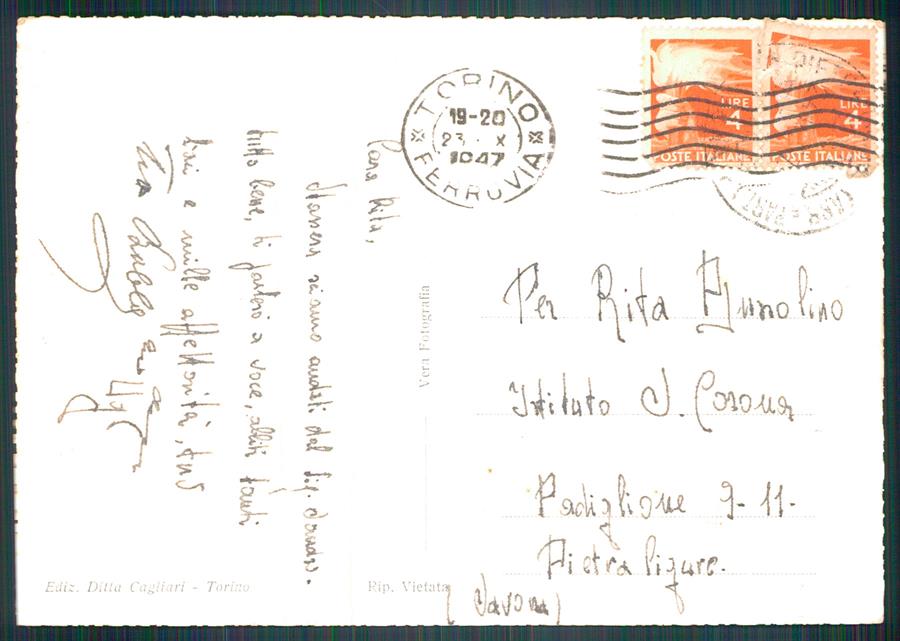 TORINO
19-20
23 . X
1947
FERROVIA
LIRE
4
POSTE ITALIANE
LIRE
4
POSTE ITALIANE
Cara Rita,
Stassera siamo andati dal Sig.
tutto bene, ti parlerò a voce, abbiti tanti
baci e mille affettuosità, tuo
Per Rita
Istituto S. Corona
Padiglione 9-11-
Pietra ligure.
(Savona)
Vera Fotografia
Ediz. Ditta Cagliari - Torino
Rip. Vietata